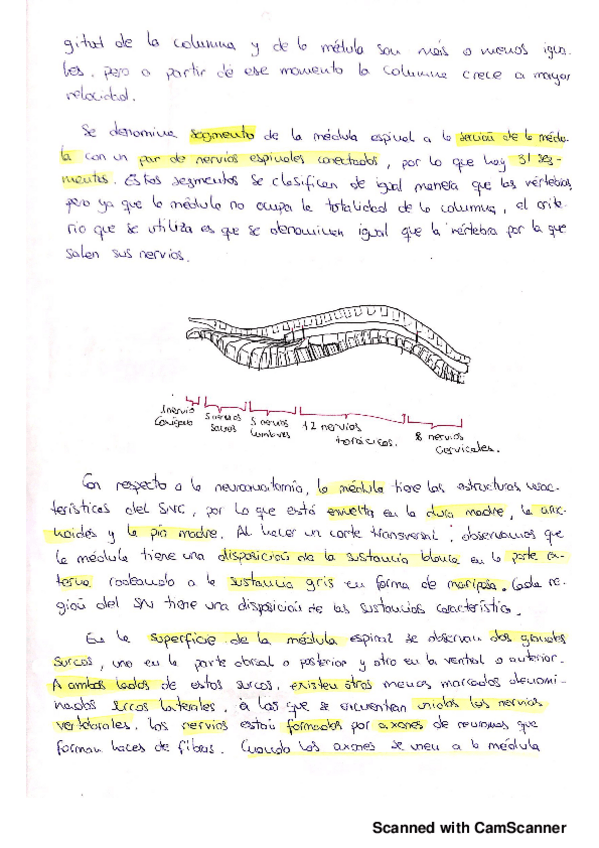 gitud de la columna y de la médula son más o menos igua-
les, pero a partir de ese momento la columna crece a mayor
velocidad.
Se denomina segmento de la médula espinal a la sección de la médu-
la con un par de nervios espinales conectados, por lo que hay 31 seg-
mentos. Estos segmentos se clasifican de igual manera que las vértebras
pero ya que la médula no ocupa la totalidad de la columna, el crite-
rio que se utiliza es que se denominen igual que la vértebra por la que
salen sus nervios.
1 nervio
coxígeo
5 nervios
sacros
5 nervios
lumbares
12 nervios
torácicos.
8 nervios
cervicales.
Con respecto a la neuroanatomía, la médula tiene las estructuras carac-
terísticas del SNC, por lo que está envuelta en la dura madre, la arac-
noides y la pía madre. Al hacer un corte transversal, observamos que
la médula tiene una disposición de la sustancia blanca en la parte ex-
terna rodeando a la sustancia gris en forma de mariposa. Cada re-
gión del SN tiene una disposición de las sustancias característica.
En la superficie de la médula espinal se observan dos grandes
surcos, uno en la parte dorsal o posterior y otro en la ventral o anterior.
A ambos lados de estos surcos, existen otros menos marcados denomi-
nados surcos laterales, a las que se encuentran unidos los nervios
vertebrales. Los nervios están formados por axones de neuronas que
forman haces de fibras. Cuando los axones se unen a la médula
Scanned with CamScanner